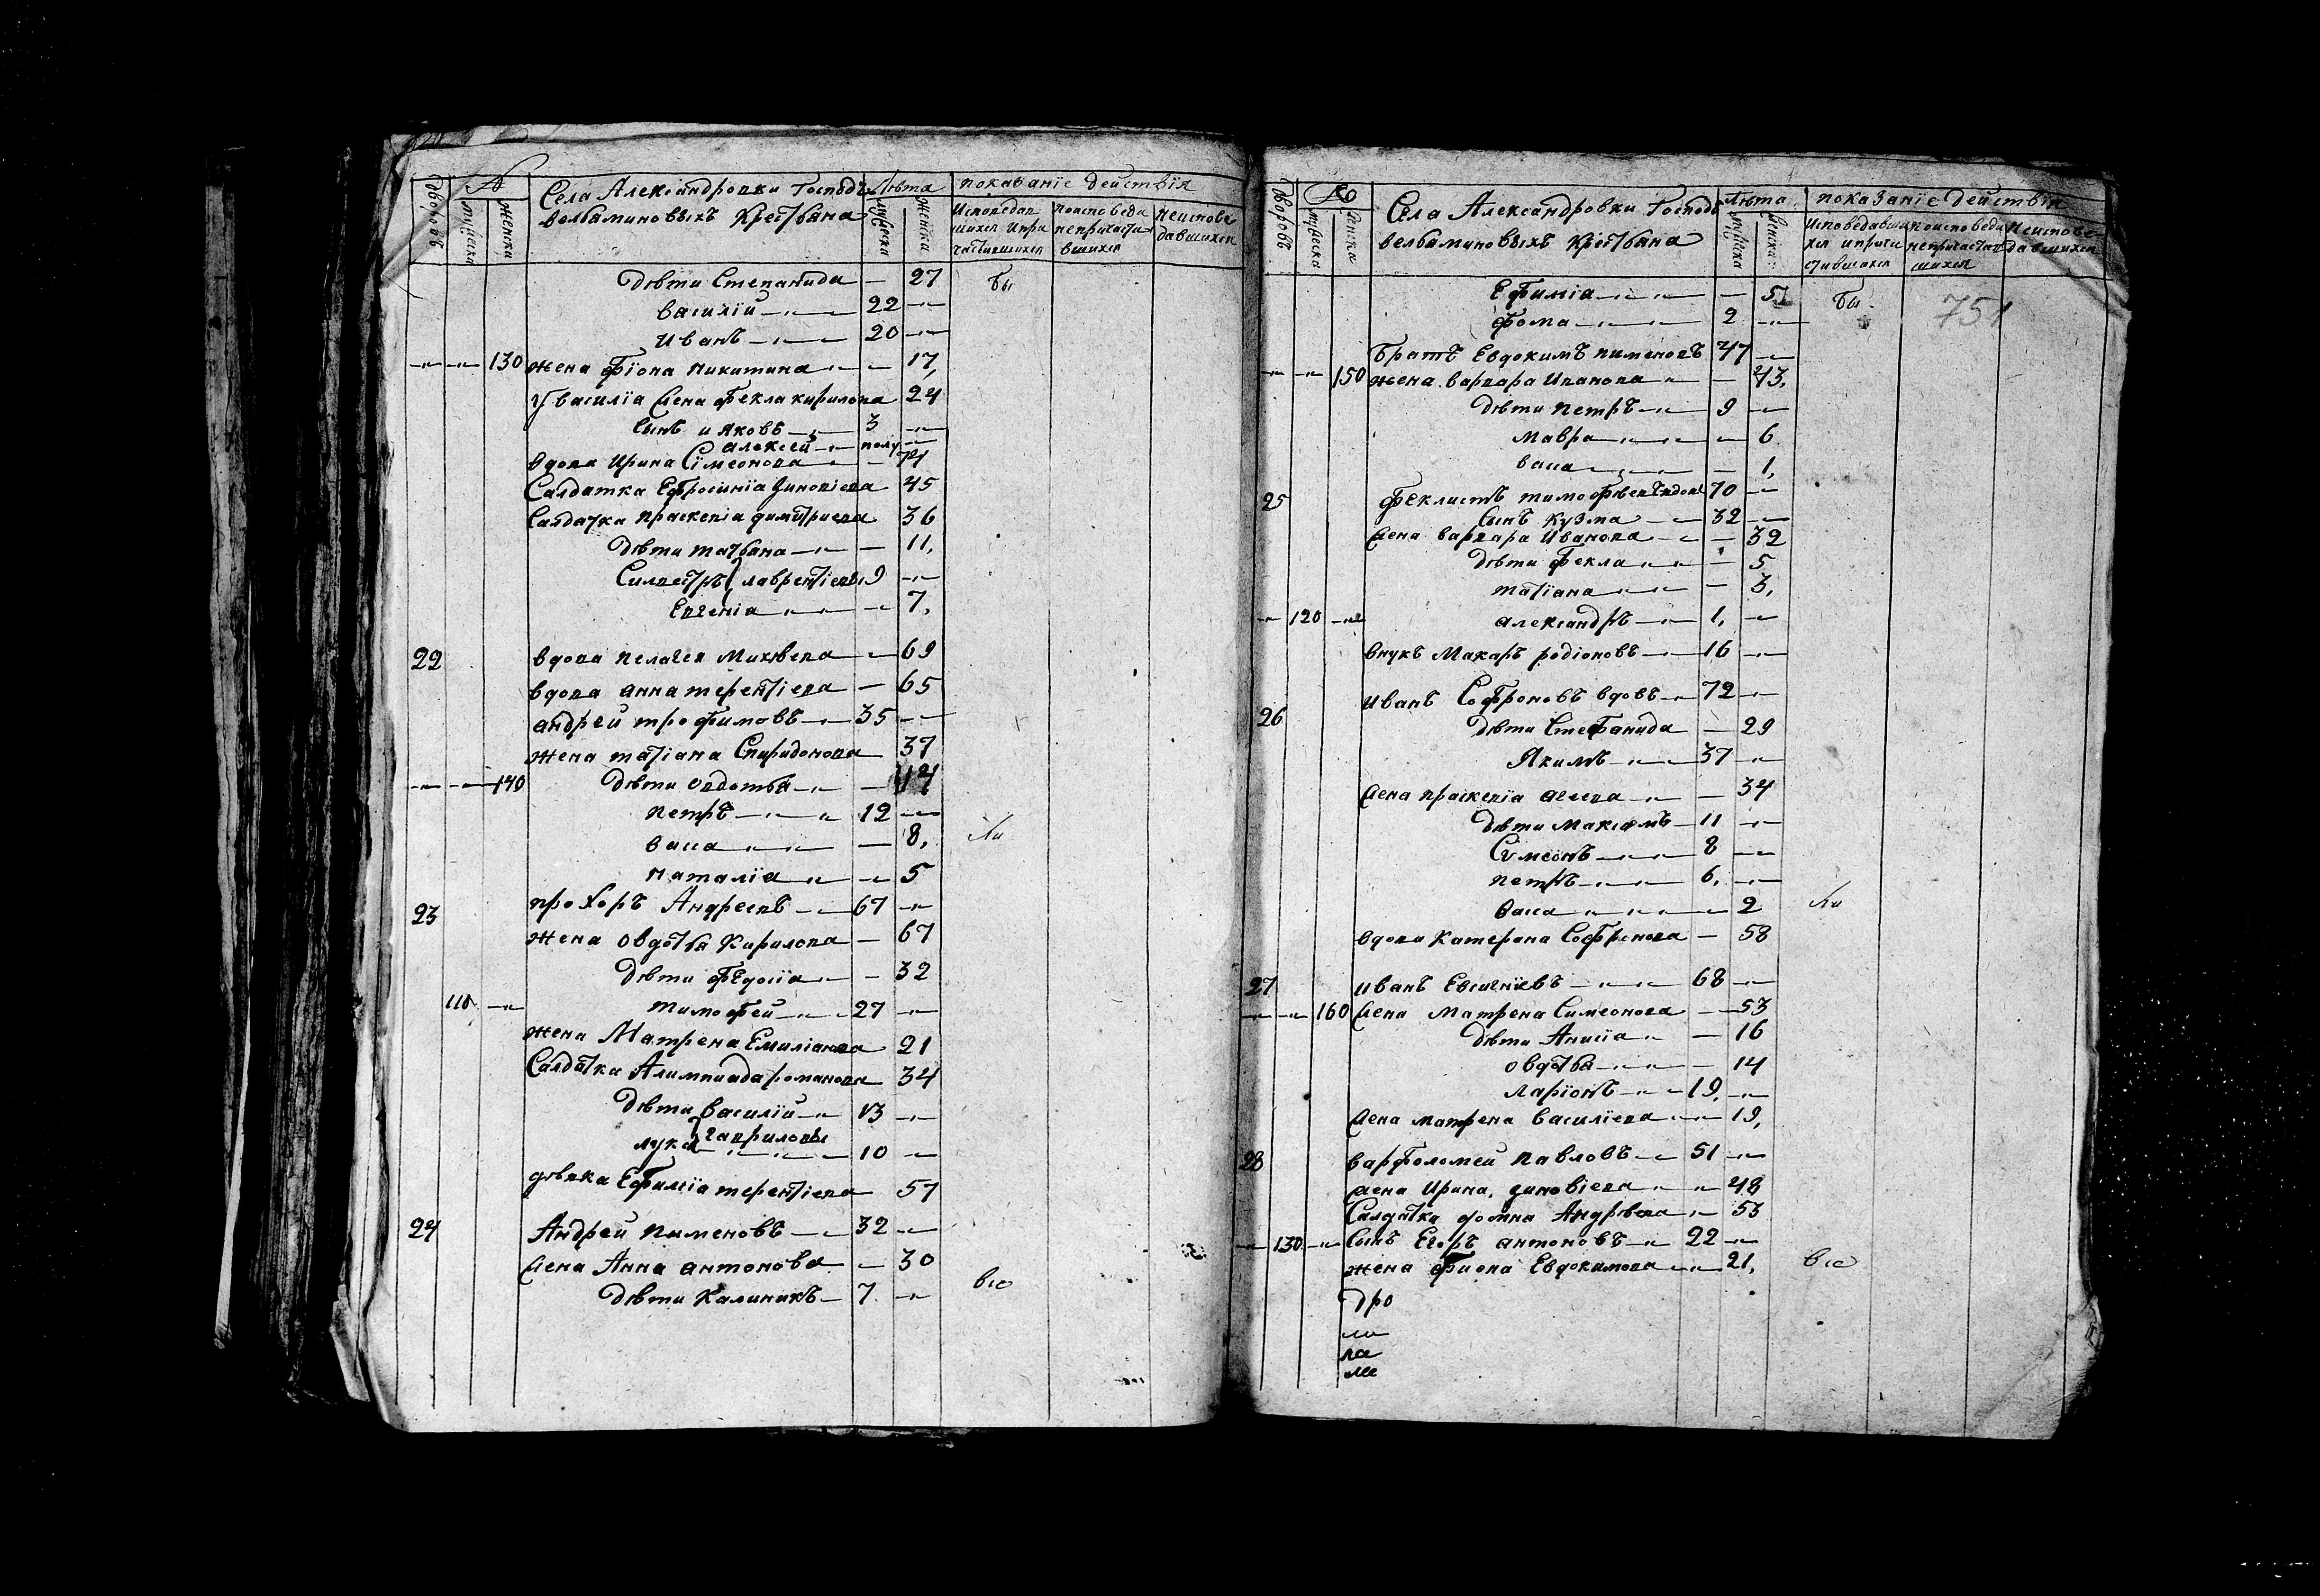 дворовъ
№
мужеска
женска
Села Александровки Господъ
вельяминовыхъ Крестьяна
Лѣта
мужеска
женска
показаніе действія
Исповедав
шихся ипри
частившихся
поисповеда
непричасти
вшихся
неиспове
давшихся
дѣти Степанида — 27 бы
василій 22
иванъ 20
130 жена Фіона Никитина — 17,
у василіа жена Фекла кирилова 24
сынъ и Яковъ 3
алексей полу
вдова Ирина Сімеонова — 74
Салдатка Ефросиніа Зиновіева 45
Салдатка праскевіа димитриева 36
дѣти татьяна — 11,
Силвестръ лаврентіевы 9
Евгеніа 7,
22 вдова пелагея Михѣева 69
вдова анна терентіева — 65
андрей трофимовъ 35
жена татіана Спиридонова 37
140 дѣти овдотья — 14
петръ 12
васа — 8, ли
наталіа 5
23 прохоръ Андреевъ 67
жена овдотья Кирилова — 67
дѣти фЕдосіа — 32
110 тимофей 27
жена Матрена Емиліанова 21
Салдатка Алимпиада романова 34
дѣти василій 13
гавриловы
лука 10
дѣвка Ефиміа терентіева 57
24 Андрей пименовъ 32
жена Анна антонова 30
дѣти Калиникъ 7 всѣ
дворовъ
№
мужеска
женска
Села Александровки Господъ
вельяминовыхъ Крестьяна
Лѣта
мужеска
женска
показаніе действія
Исповедавши
хся иприча
стившихся
поисповеди
непричастив
шихся
Неиспове
давшихся
751
Ефиміа — 5 бы
фома 2
братъ Евдокимъ пименовъ 47
150 жена варвара Иванова — 43,
дѣти петръ 9
мавра 6
васа — 1,
25 феклистъ тимофѣевъ вдовъ 70
сынъ кузма 32
жена варвара Иванова 32
дѣти фекла — 5
татіана — 3,
120 александръ 1,
внукъ Макаръ родіоновъ 16
26 иванъ Софроновъ вдовъ 72
дѣти Стефанида — 29
Якимъ 37
жена праскевіа агеева — 34
дѣти максимъ 11
Сѵмеонъ 8
петръ 6,
васа 2 ли
вдова Катерина Софронова — 58
27 иванъ Евсигнѣевъ 68
160 жена Матрена Симеонова 53
дѣти Анисіа — 16
овдотья — 14
Ларіонъ 19,
жена матрена василіева 19,
28 варфоломей павловъ 51
жена Ирина зиновіева 48
Салдатка домна Андрѣева 53
130 сынъ Егоръ антоновъ 22
жена Фиона Евдокимова 21, всѣ
дро
ли
ла
ме